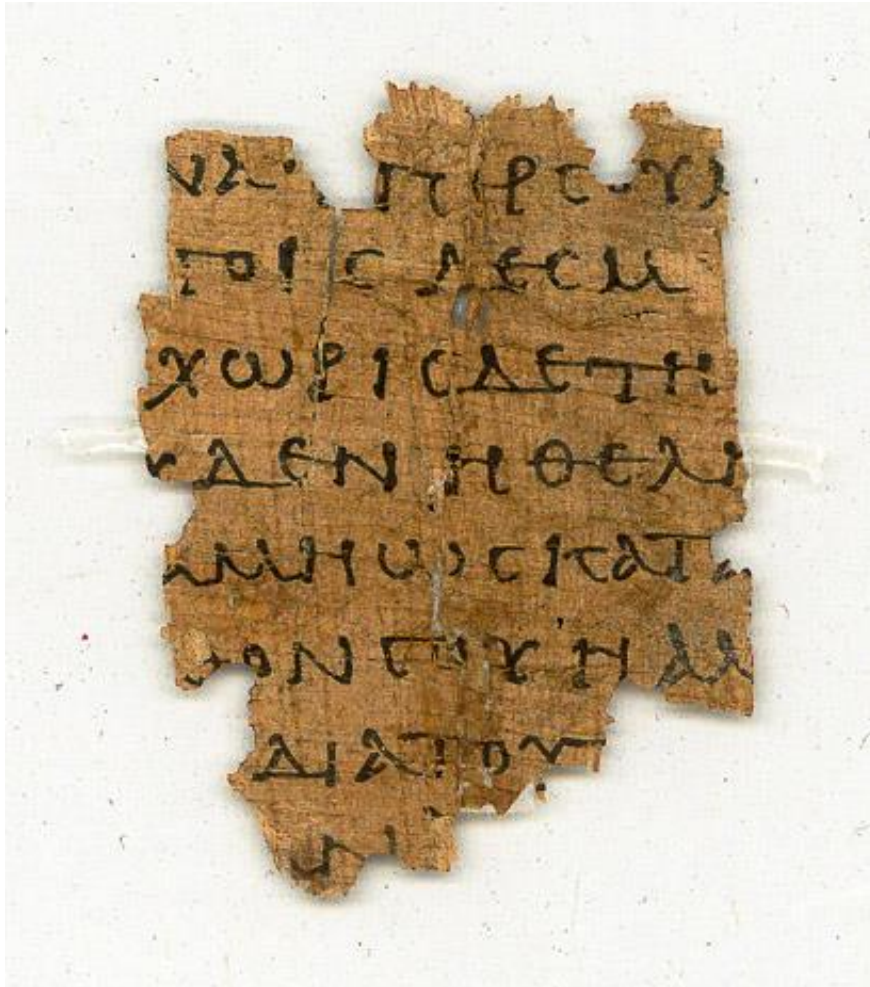 ΝΑ ΠΕΡ ϹΟΥ
ΤΟΙϹ ΔΕϹΜ
ΧΩΡΙϹ ΔΕ ΤΗ
ΥΔΕΝ ΗΘΕΛΗ
Α ΜΗ ΩϹ ΚΑΤΑ
ΘΟΝ ϹΟΥ Η ΑΛΛ
ΔΙΑ ΤΟΥ
Ν